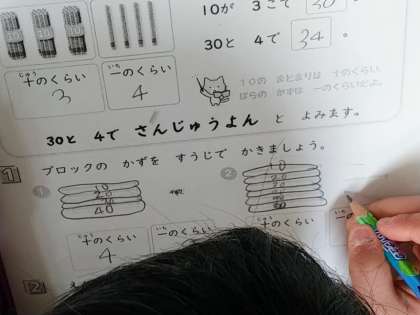 10が 3こで 30。
30と 4で 34。
じゅう
十のくらい
いち
一のくらい
3
4
10の まとまりは 十のくらい、
ばらの かずは 一のくらいだよ。
30と 4で さんじゅうよん と よみます。
1 ブロックの かずを すうじで かきましょう。
①
10
20
30
40
じゅう
十のくらい
4
②
10
20
30
じゅう
十のくらい
いち
2